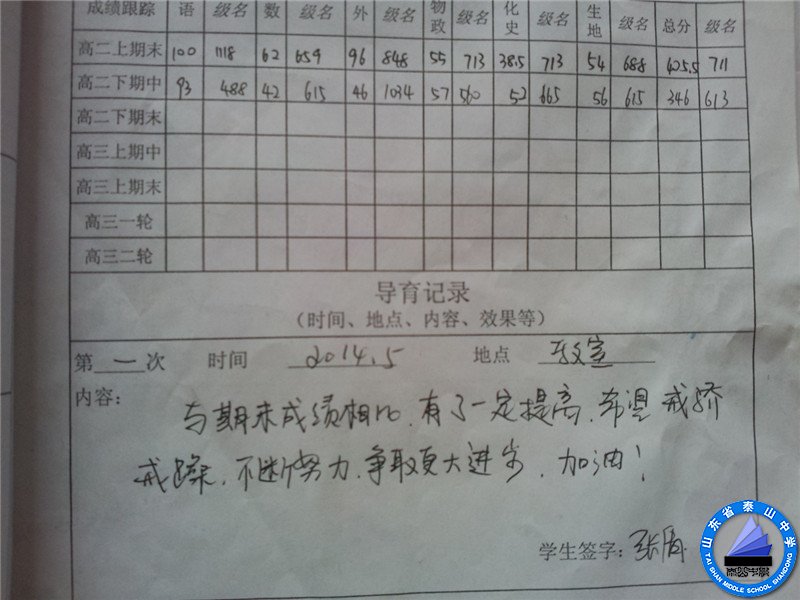 成绩跟踪 语 级名 数 级名 外 级名 物政 级名 化史 级名 生地 级名 总分 级名
高二上期末 100 1118 62 659 96 848 55 713 38.5 713 54 688 405.5 711
高二下期中 93 488 42 615 46 1034 57 560 52 665 56 615 346 613
高二下期末
高三上期中
高三上期末
高三一轮
高三二轮
导育记录
(时间、地点、内容、效果等)
第一次 时间 2014.5 地点 教室
内容:
与期末成绩相比,有了一定提高,希望戒骄
戒躁,不断努力,争取更大进步,加油!
学生签字:张
山东省泰山中学
TAI SHAN MIDDLE SCHOOL SHANDONG